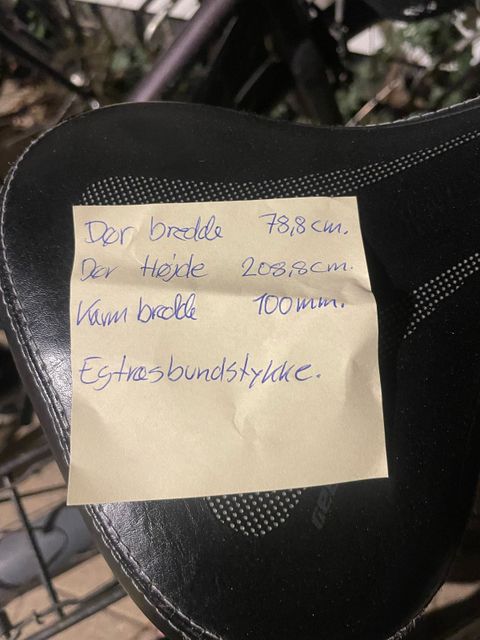 Dør bredde 78,8 cm.
Dør Højde 208,8 cm.
Karm bredde 100 mm.
Egtræsbundstykke.